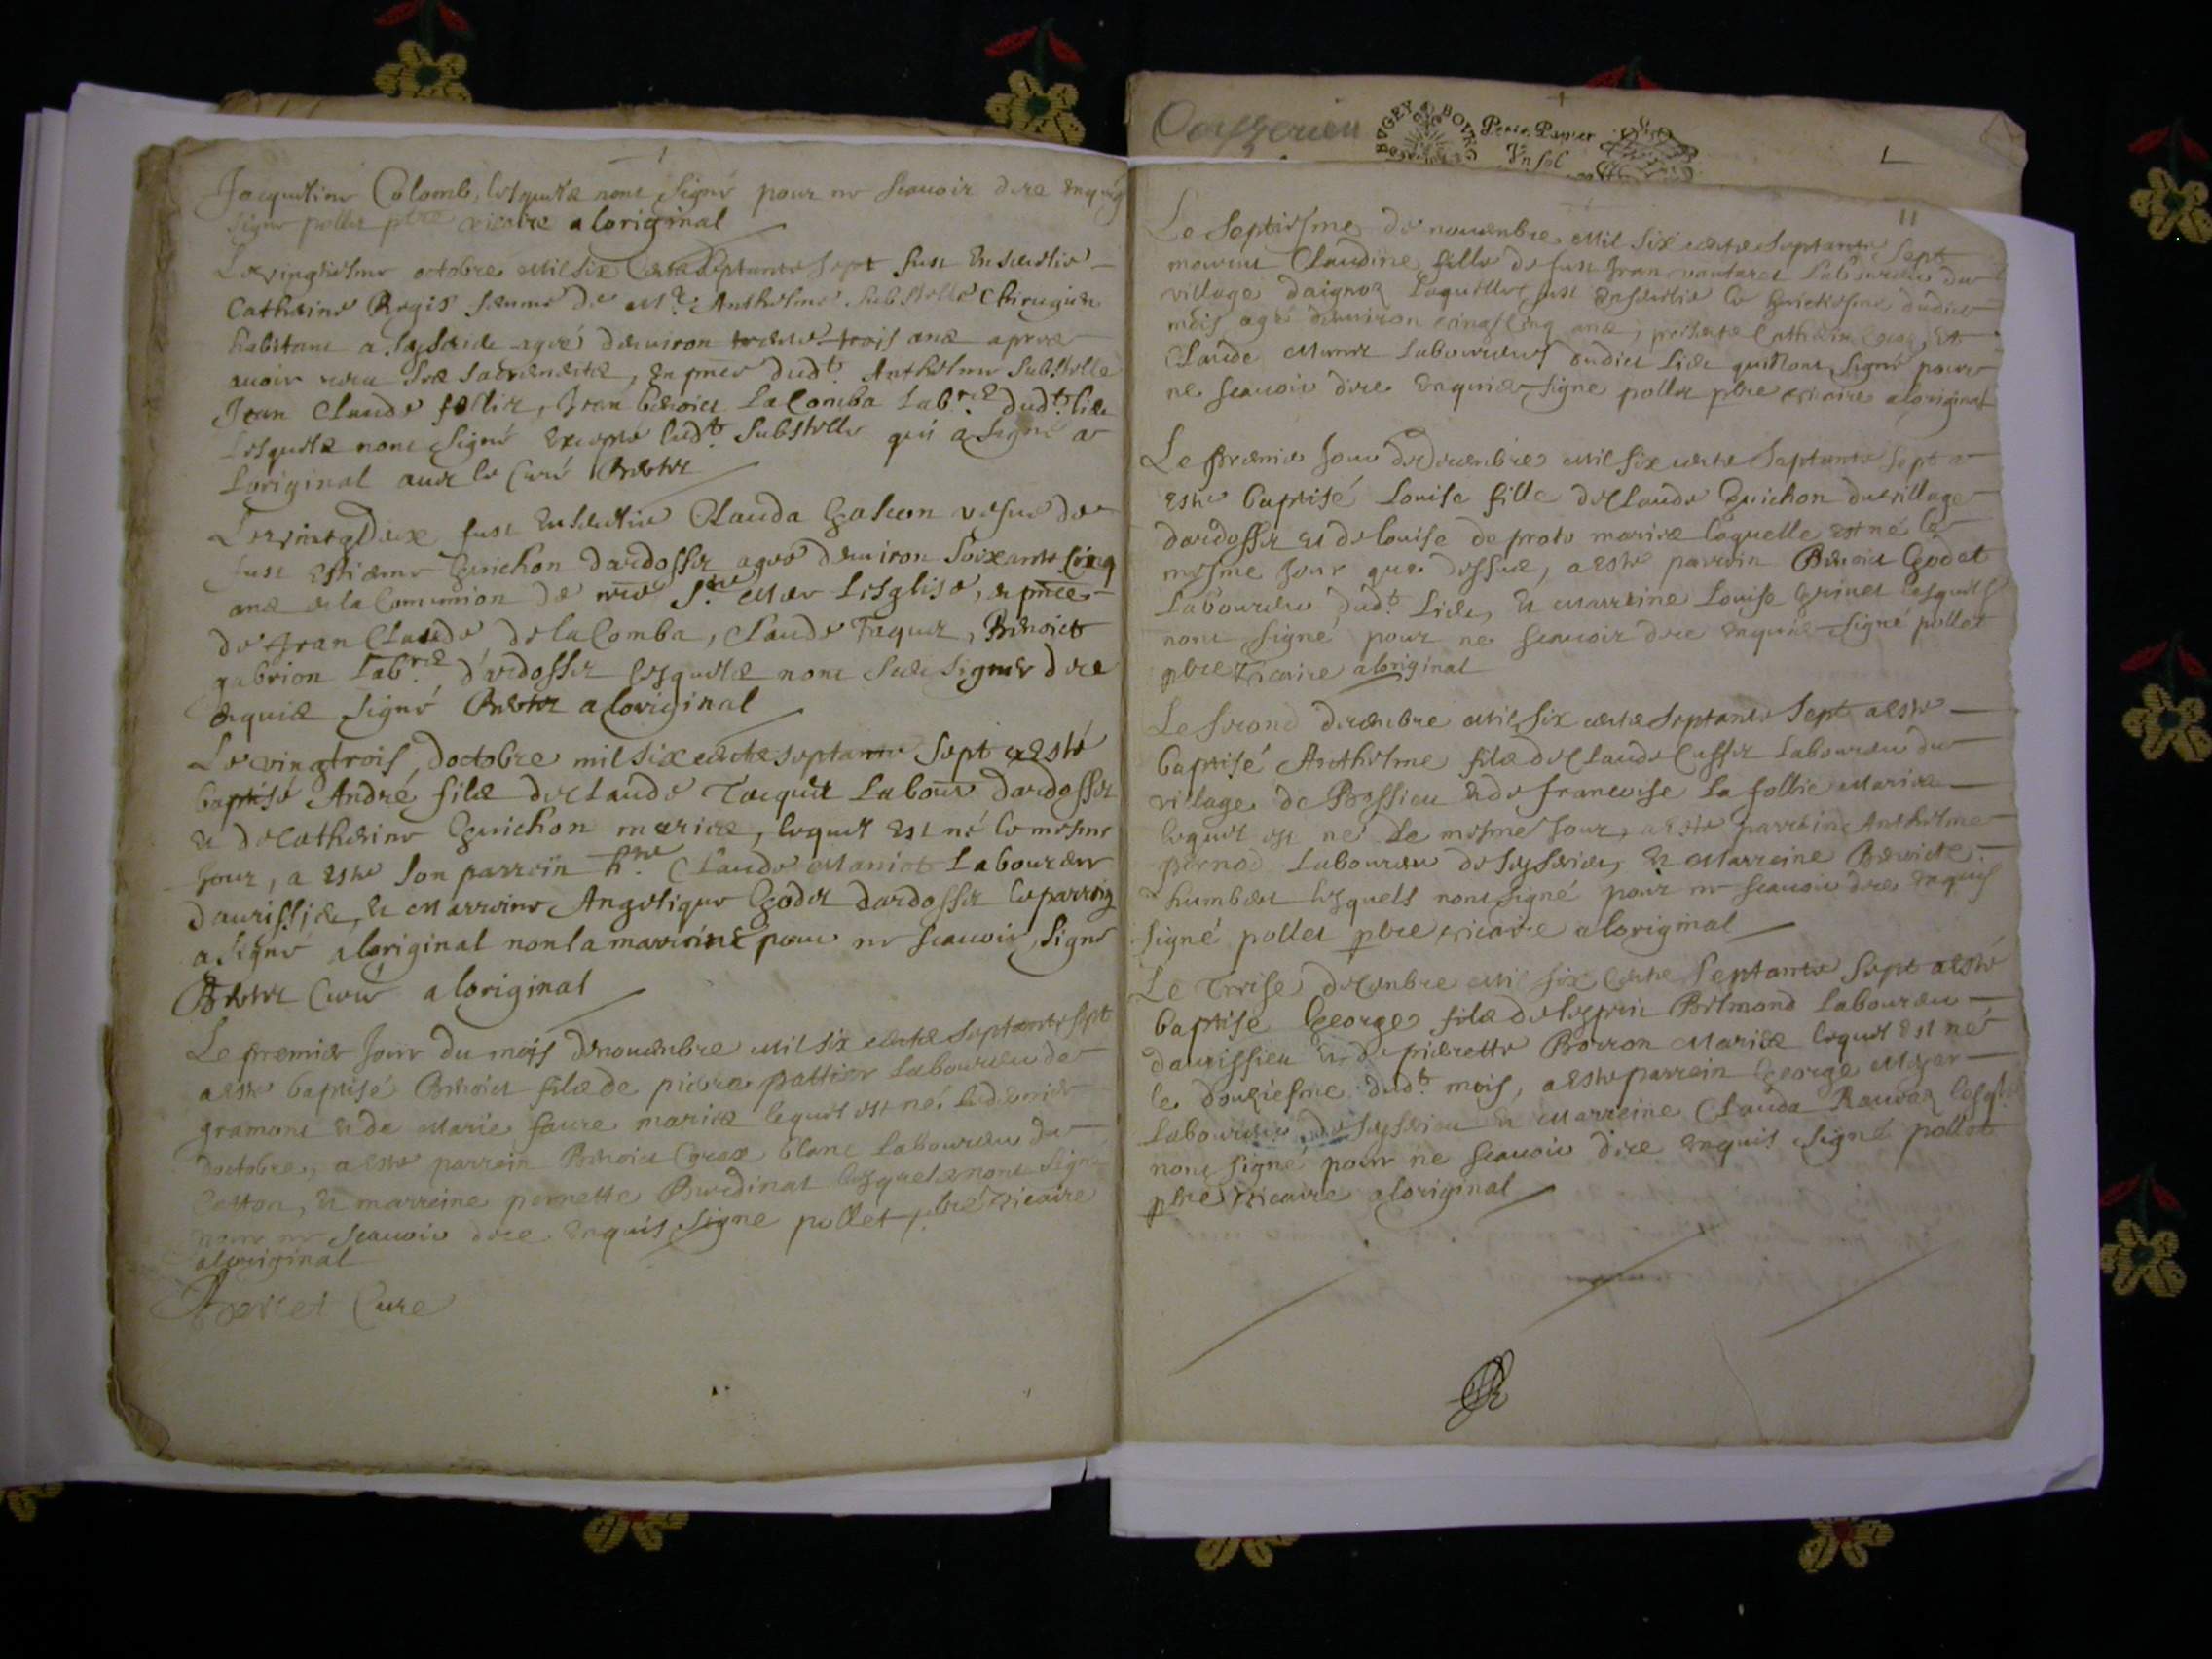 Jacqueline Colomb, lesquels nont signé pour ne scauoir dere enquis
signe pollet pbre vicaire a loriginal
Le vingtiesme octobre mil six cents septante sept fust enseuelie
Catherine Regis femme de Mr. Anthelme Substelle Chirugien
habitant a agée denviron trois ans apres
auoir receu Ses sacrements, en pnce dudt. Anthelme Substelle
Jean Claude follir, Jean benoict La Comba Labrs dudt. lieu
Lesquels nont signé excepté ledt. Substelle qui a signé a
Loriginal auec le Curé
Le vingt deux fust enseuelie Clauda Gascon vefue de
fust Estienne Guichon dardosset agée denuiron soixante cinq
ans en la Communion de nre Ste Mere Lesglise, en pnce
de Jean Claude de la Comba, Claude Taquet, Benoict
gabrion Labrs dardosset lesquels nont sceu signer dere
enquis signé a loriginal
Le vingtrois doctobre mil six cents septante sept a esté
baptisé André fils de Claude Tacquet Labour dardosset
et de Catherine Guichon mariés, lequel est né le mesme
jour, a esté son parrein hble Claude Maniot Laboureur
daurissieu, et Marreine Angelique Godet dardosset le parrein
a signé a loriginal non la marreine pour ne scauoir, signé
Curé a loriginal
Le premier jour du mois de nouembre mil six cents septante sept
a esté baptisé Benoict fils de pierre pattier laboureur de
gramont et de Marie faure mariés lequel est né le dernier
doctobre, a esté parrein Benoict Croux blanc laboureur de
Cotton, et marreine pernette Burdinat lesquels nont signé
pour ne scauoir dere enquis, signe pollet pbre vicaire
a loriginal
Curé
BVGEY BOVRG
Petit Papier
Vn sol
11
Le septiesme de nouembre mil six cents septante sept
mourut Claudine fille de fust Jean Laboureur du
village daignoz Laquelle fust enseuelie le huictiesme dudict
mois agée denuiron cinq ans, presents et
Claude Laboureurs oudict lieu qui nont signé pour
ne scauoir dere enquis signe pollet pbre vicaire a loriginal
Le premier jour de decembre mil six cents septante sept a
esté baptisé Louise fille de Claude Guichon du village
dardosset et de louise de proto mariés laquelle est né le
mesme jour que dessus, a esté parrein Benoict Godet
laboureur dudt. lieu, et Marreine Louise Grinet lesquels
nont signé pour ne scauoir dere enquis signé pollet
pbre vicaire a loriginal
Le second decembre mil six cents septante sept a esté
baptisé Anthelme fils de Claude Cusset laboureur du
village de Bossieu et de francoise la follie mariés
lequel est né le mesme jour, a esté parrein Anthelme
pernod laboureur de et Marreine Benoicte
humbert lesquels nont signé pour ne scauoir dere enquis
signé pollet pbre vicaire a loriginal
Le treise decembre mil six cents septante sept a esté
baptise George fils de Bermond laboureur
daurissieu et de pierrette Borron Mariés lequel est né
le douziesme dudt. mois, a esté parrein George Meyer
laboureur et Marreine Clauda lesqls
nont signé pour ne scauoir dire enquis signé pollet
pbre vicaire a loriginal